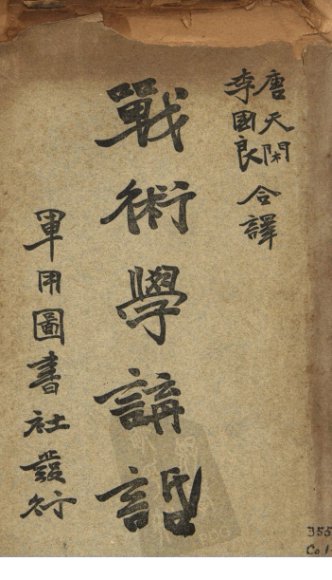 唐天閑
李國良
合譯
戰術學講話
軍用圖書社發行
355